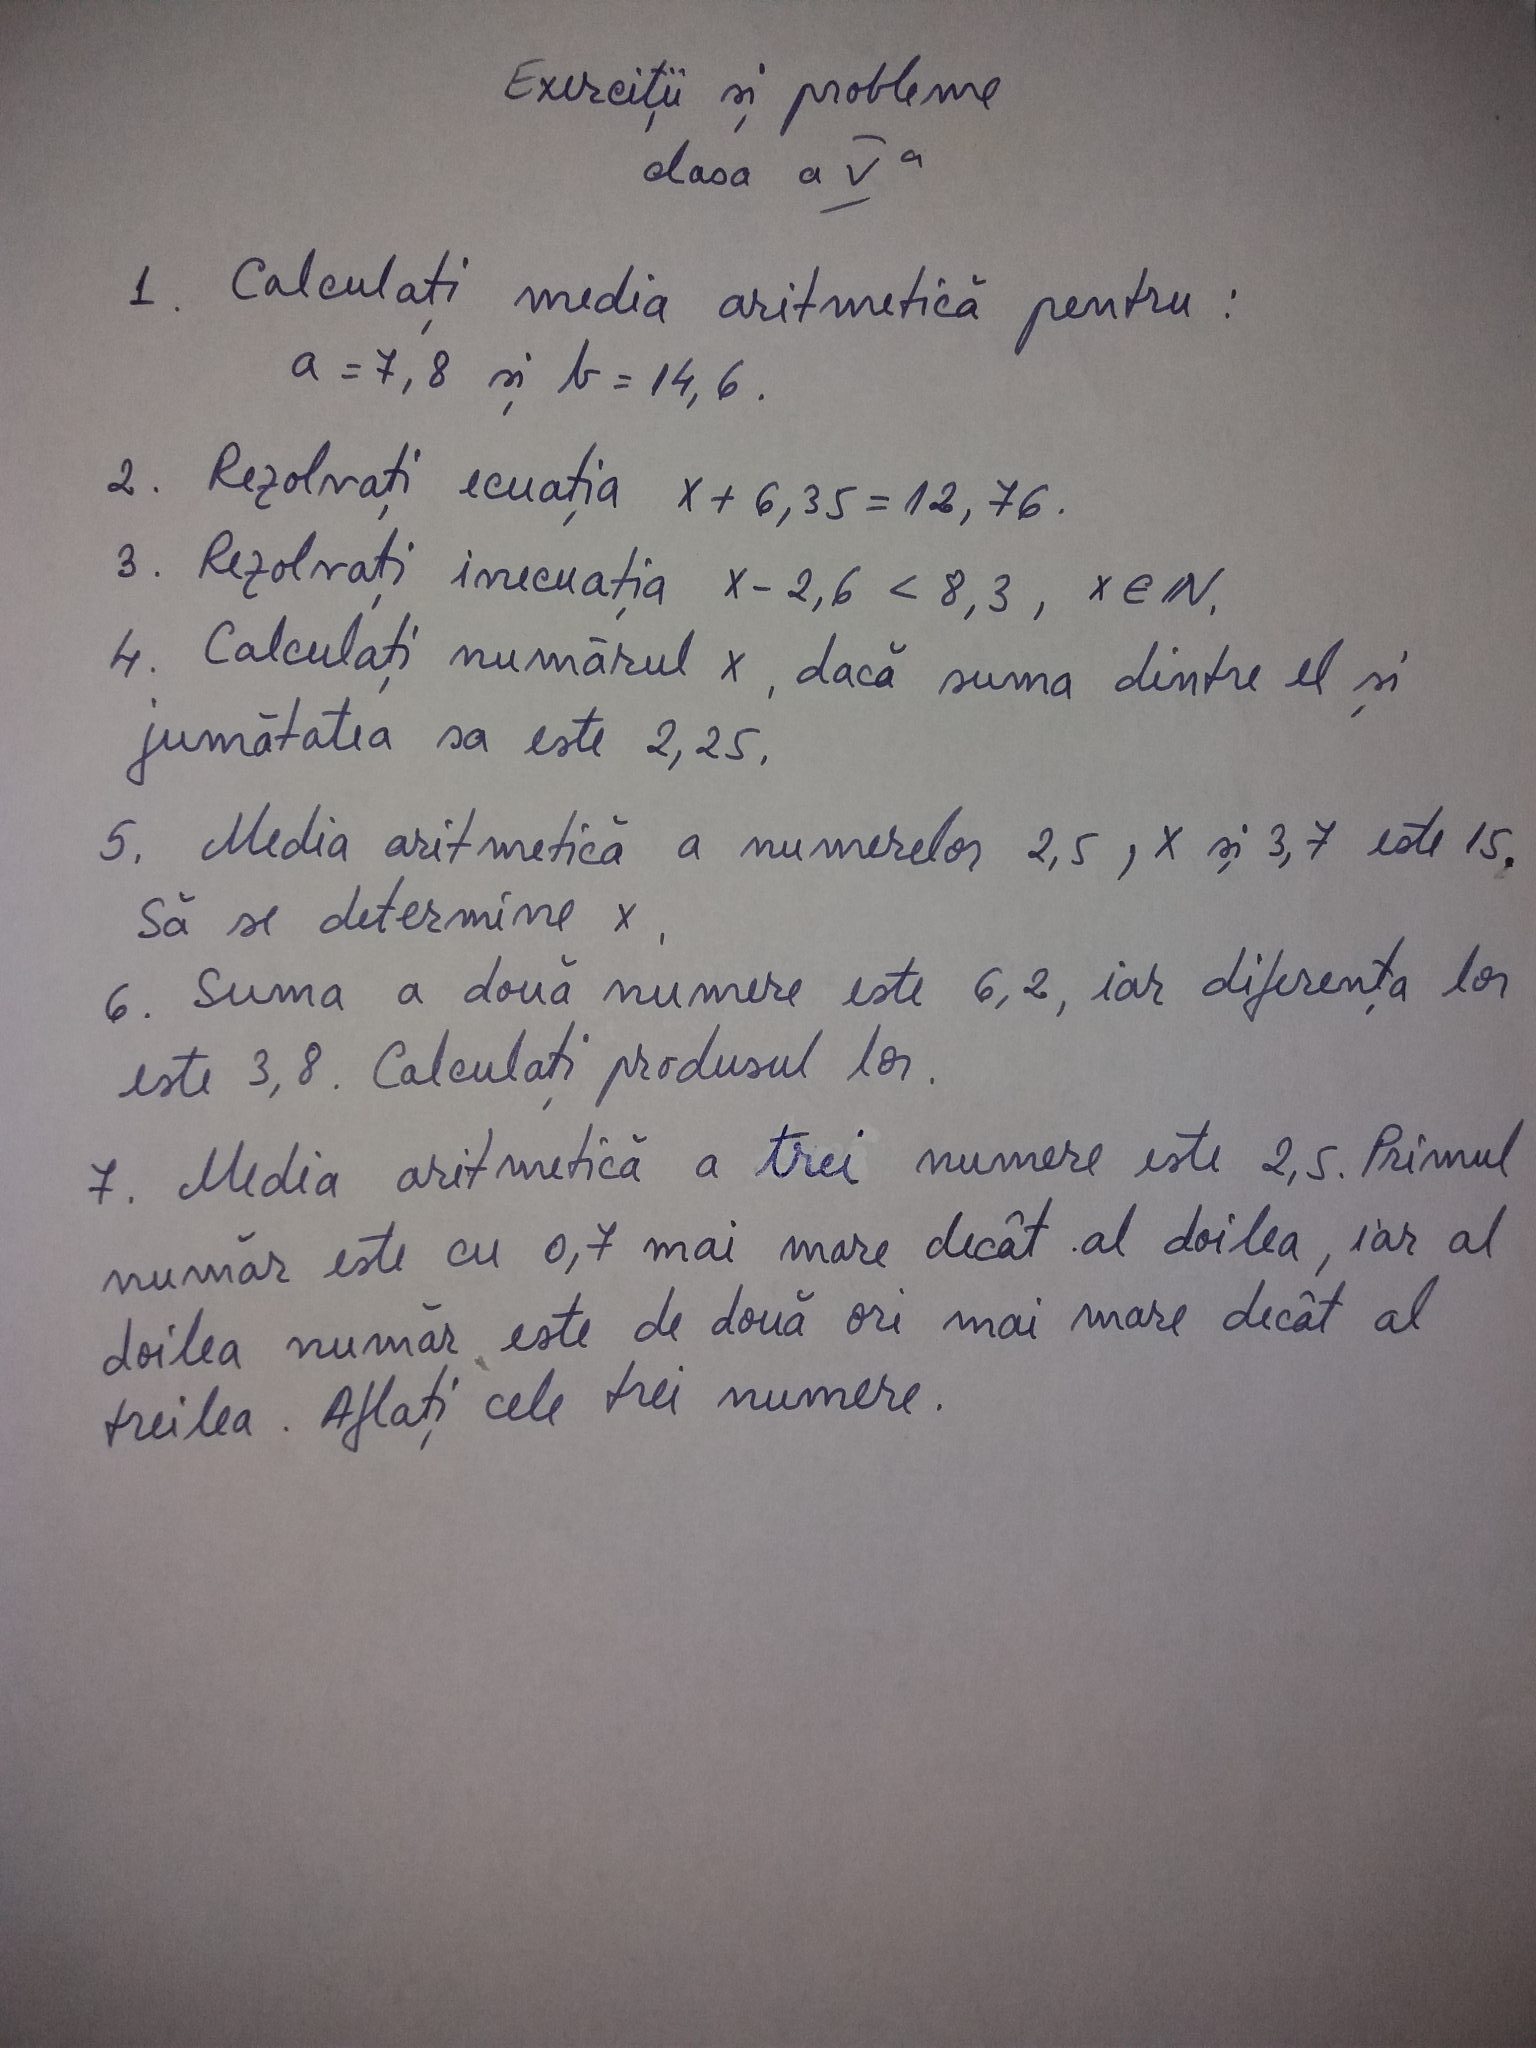 Exerciții și probleme
clasa a V a
1. Calculați media aritmetică pentru:
a = 7,8 și b = 14,6.
2. Rezolvați ecuația x + 6,35 = 12,76.
3. Rezolvați inecuația x - 2,6 < 8,3, x ∈ ℕ.
4. Calculați numărul x, dacă suma dintre el și
jumătatea sa este 2,25.
5. Media aritmetică a numerelor 2,5, x și 3,7 este 15.
Să se determine x.
6. Suma a două numere este 6,2, iar diferența lor
este 3,8. Calculați produsul lor.
7. Media aritmetică a trei numere este 2,5. Primul
număr este cu 0,7 mai mare decât al doilea, iar al
doilea număr este de două ori mai mare decât al
treilea. Aflați cele trei numere.